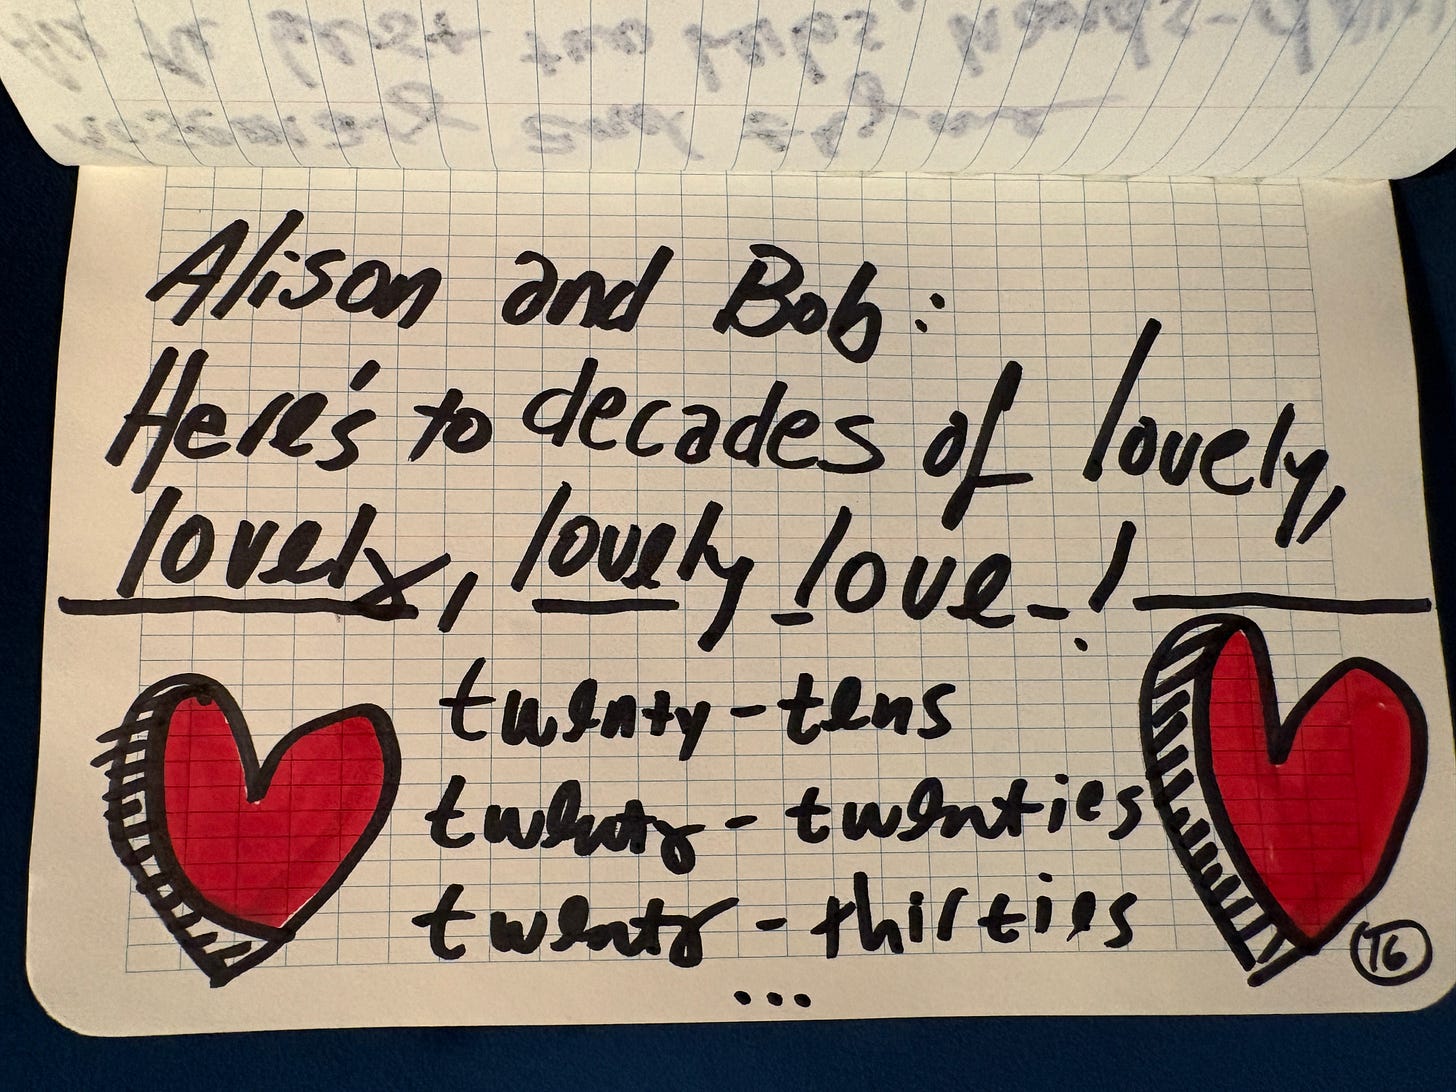 Alison and Bob:
Here's to decades of lovely,
lovely, lovely love!
twenty-tens
twenty-twenties
twenty-thirties
...
TG